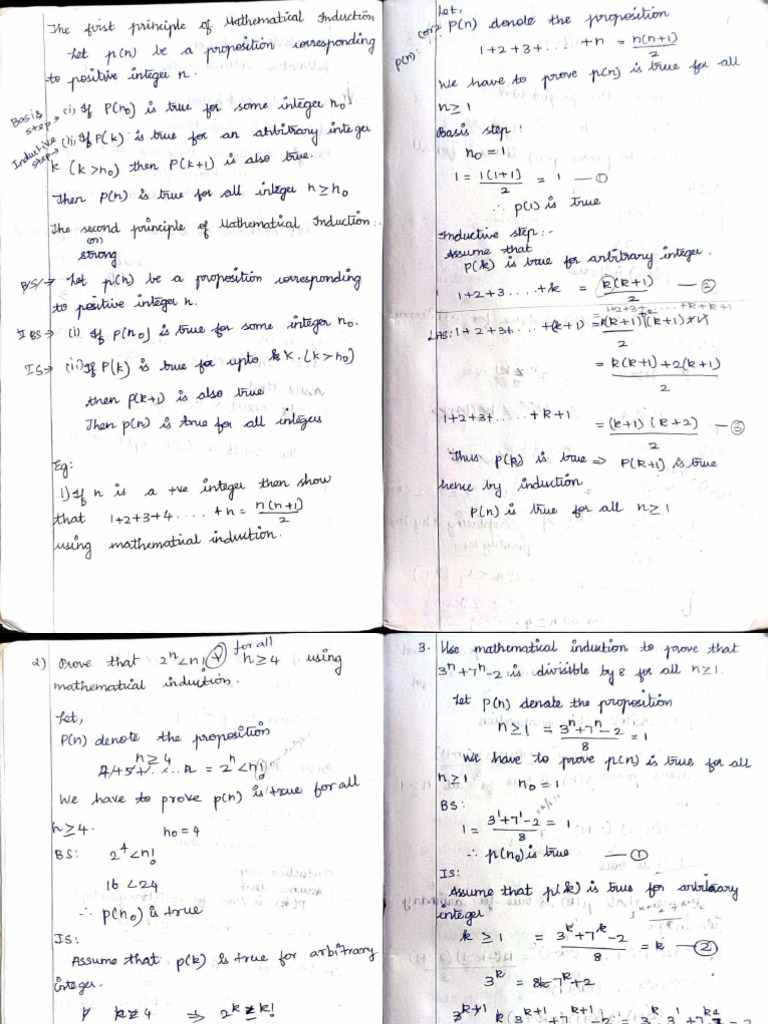 The first principle of Mathematical Induction
Let p(n) be a proposition corresponding
to positive integer n.
Basis step → (i) If P(n₀) is true for some integer n₀
Inductive step → (ii) If P(k) is true for an arbitrary integer
k (k>n₀) then P(k+1) is also true.
Then P(n) is true for all integer n≥n₀
The second principle of Mathematical Induction:-
(or)
strong
BS/→ Let p(n) be a proposition corresponding
to positive integer n.
IBS→ (i) If P(n₀) is true for some integer n₀.
IS→ (ii) If P(k) is true for upto k. (k>n₀)
then p(k+1) is also true
Then p(n) is true for all integers
Eg:
1) If n is a +ve integer then show
that 1+2+3+4.....+n = n(n+1)/2
using mathematical induction.
Let,
p(n): (or) P(n) denote the proposition
1+2+3+.....+n = n(n+1)/2
We have to prove p(n) is true for all
n≥1
Basis step:
n₀=1
1 = 1(1+1)/2 = 1 — ①
∴ p(1) is true
Inductive step:-
Assume that
P(k) is true for arbitrary integer.
1+2+3.....+k = k(k+1)/2 — ②
= 1+2+3+.....+k+k+1
LHS: 1+2+3+.....+(k+1) = k(k+1)+(k+1)/2
= k(k+1)+2(k+1)/2
1+2+3+......+k+1
= (k+1)(k+2)/2 — ③
Thus p(k) is true ⇒ P(k+1) is true
hence by induction
p(n) is true for all n≥1
2) Prove that 2ⁿ<n! ∀ for all n≥4 using
mathematical induction.
Let,
P(n) denote the proposition
n≥4
= 2ⁿ<n!
We have to prove p(n) is true for all
n≥4. n₀=4
BS: 2⁴<n!
16<24
∴ p(n₀) is true
IS:
Assume that p(k) is true for arbitrary
integer.
k≥4 ⇒ 2ᵏ≥k!
3. Use mathematical induction to prove that
3ⁿ+7ⁿ-2 is divisible by 8 for all n≥1.
Let p(n) denate the proposition
n≥1 = 3ⁿ+7ⁿ-2/8 = 1
We have to prove p(n) is true for all
n≥1 n₀=1
BS:
1 = 3¹+7¹-2/8 = 1
∴ p(n₀) is true — ①
IS:
Assume that p(k) is true for arbitrary
integer
k≥1 = 3ᵏ+7ᵏ-2/8 = k — ②
3ᵏ = 8k-7ᵏ+2